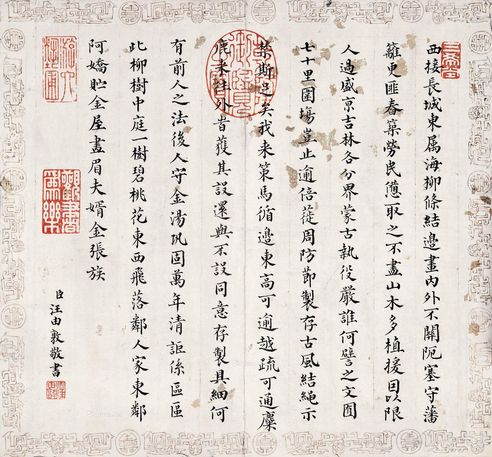 西接長城東属海柳條結邊畫内外不關阨塞守藩
籬更匪春築勞民憊取之不盡山木多植援因以限
人過盛京吉林各分界蒙古執役嚴誰何譬之文囿
七十里圍場豈止逾倍蓰周防節製存古風結繩示
禁斯足矣我来策馬循邊東高可逾越疏可通麋
鹿来往外昔獲其設還與不設同意存製具細何
有前人之法後人守金湯巩固萬年清詎係區區
此柳樹中庭一樹碧桃花東西飛落鄰人家東鄰
阿嬌貯金屋畫眉夫婿金張族
臣汪由敦敬書
觀書為樂